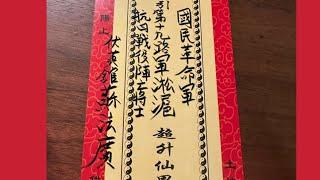 國民革命軍
第十九路軍淞滬
抗日戰役陣亡將士
超升仙
陽上
伏英館蘇法廣